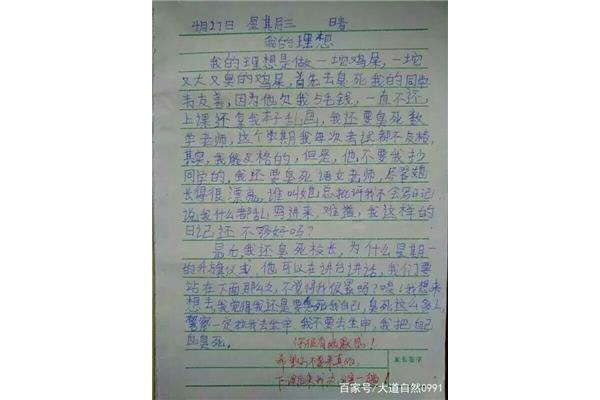 4月27日 星期三 晴
我的理想
我的理想是做一坨鸡屎,一坨
又大又臭的鸡屎,首先去臭死我的同学
韦友善,因为他欠我5毛钱,一直不还,
上课还拿我本子乱画,我还要臭死数
学老师,这个学期我每次考试都不及格,
其实,我能及格的,但是,他不要我抄
同学的,我还要臭死语文老师,尽管她
长得很漂亮,谁叫她总批评我不会写日记
说我什么都乱写进来,难道,我这样的
日记还不够好吗?
最后,我还臭死校长,为什么星期一
的升旗仪式,他可以在讲台讲话,我们要
站在下面那么久,不觉得我很累吗?唉!我想来
想去,我觉得我还是要臭死我自己,臭死这么多人
警察一定拉我去坐牢,我不要去坐牢,我把自己
臭死。
你很有幽默感!
希望你不要来真的,
下课后来我办
家长签字
百家号/大道自然0991